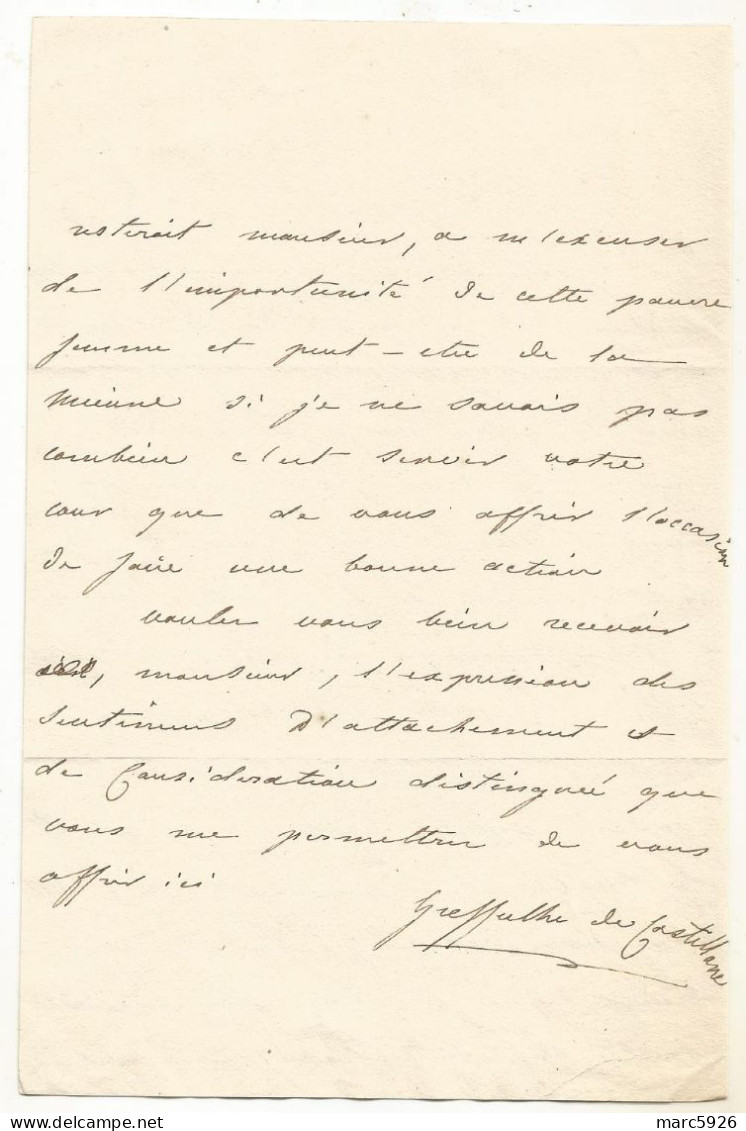 resterait monsieur, a m'excuser
de l'importunité de cette pauvre
femme et peut-etre de la
mienne si je ne savais pas
combien c'est servir votre
cœur que de vous offrir l'occasion
de faire une bonne action
voulez vous bien recevoir
monsieur, l'expression des
sentimens d'attachement et
de Consideration distinguée que
vous me permettrez de vous
offrir ici
Greffulhe de Castellane
marc5926